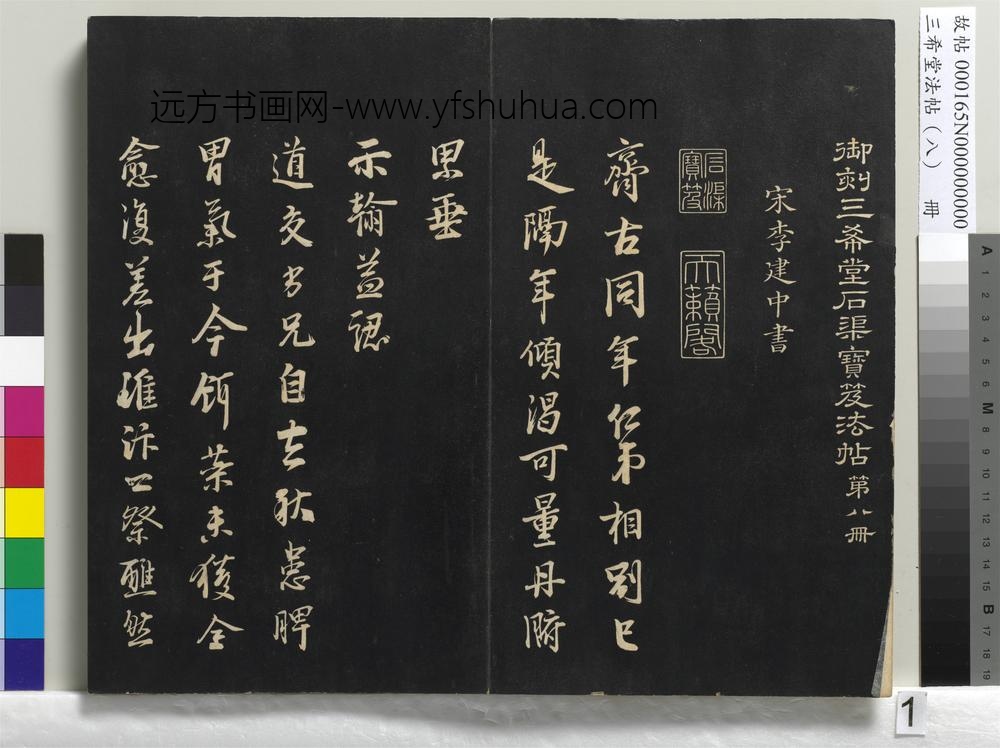 御刻三希堂石渠寶笈法帖第八冊
宋李建中書
石渠寶笈
天籟閣
齊古同年仁弟相別已
是隔年傾渴可量丹腑
思垂
示翰益認
道友好兄自去秋患脾
胃氣于今餌藥未獲全
愈復差出淮汴口祭醮然
远方书画网-www.yfshuhua.com
故帖 000165N000000000
三希堂法帖(八) 冊
1
A 1 2 3 4 5 6 M 8 9 10 11 12 13 14 15 B 17 18 19